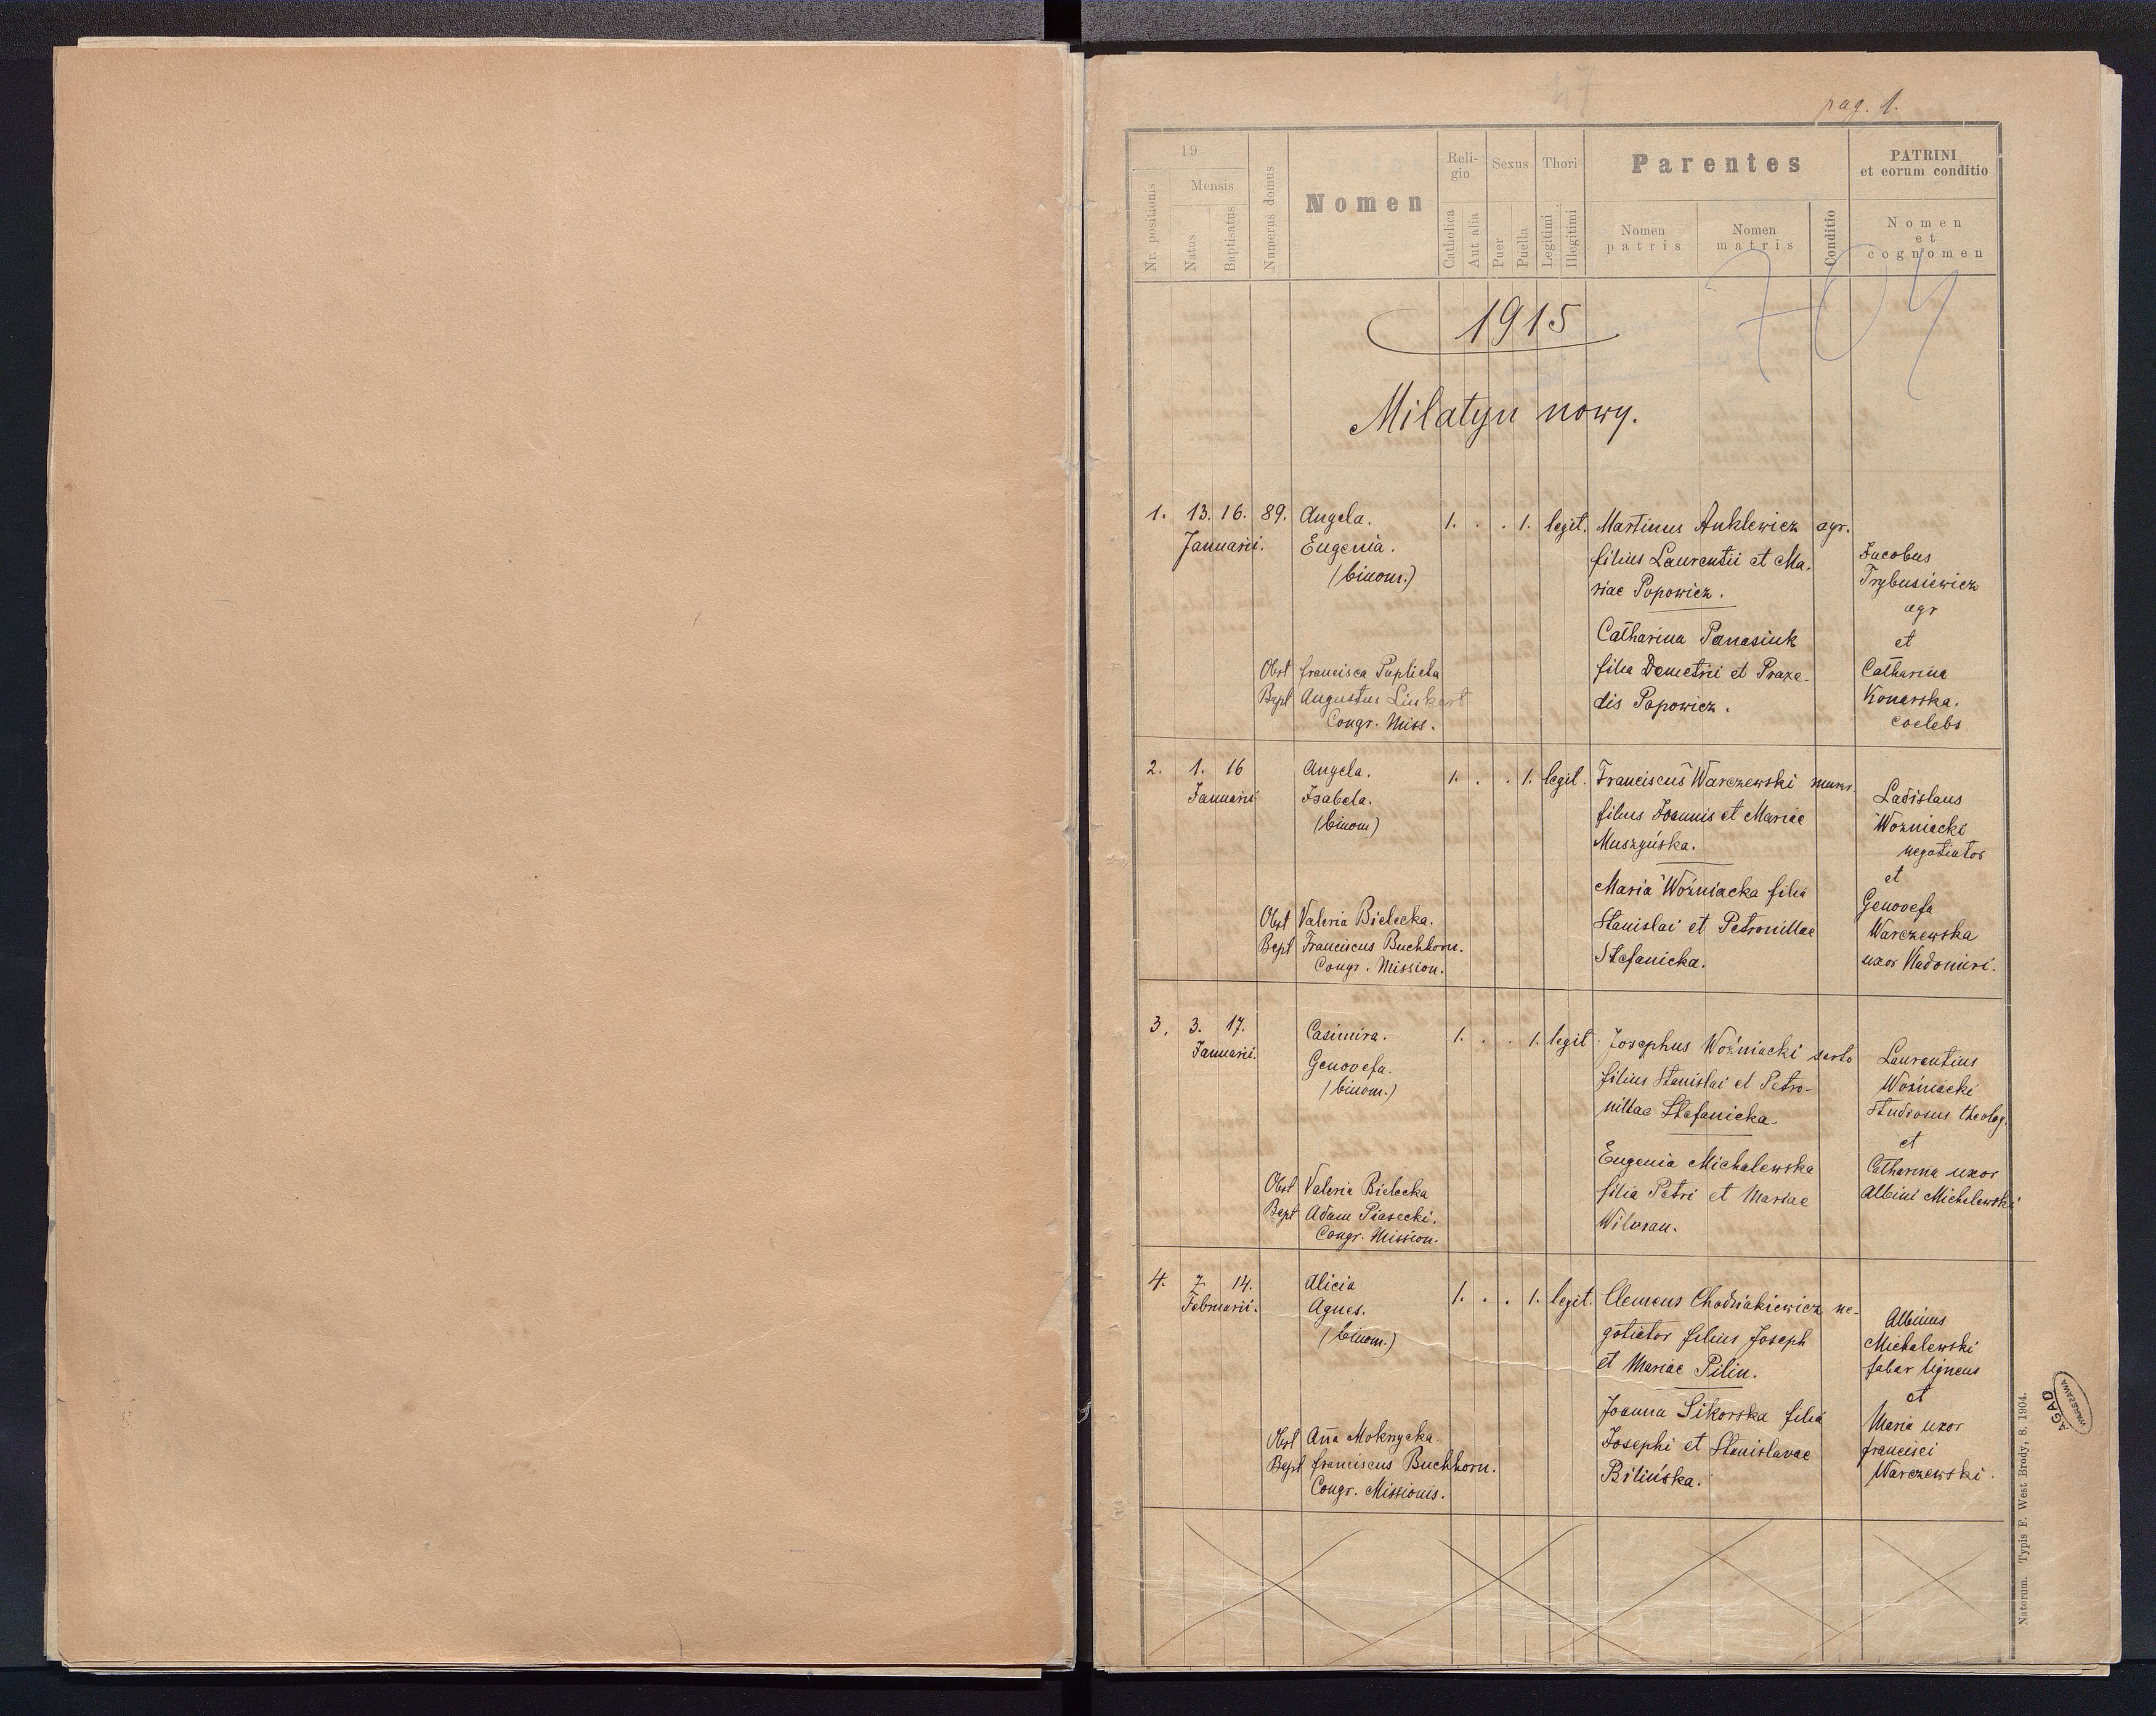 pag. 1.
19
Nr. positionis
Mensis
Natus
Baptisatus
Numerus domus
Nomen
Reli-
gio
Catholica
Aut alia
Sexus
Puer
Puella
Thori
Legitimi
Illegitimi
Parentes
Nomen
patris
Nomen
matris
Conditio
PATRINI
et eorum conditio
Nomen
et
cognomen
704
1915
Milatyn nowy.
1. 13. 16. 89. Angela. 1. . . 1. legit. Martinus Anklewicz agr.
Januarii. Eugenia.
(binom.)
filius Laurentii et Ma-
riae Popowicz.
Catharina Panasiuk
filia Demetrii et Praxe-
dis Popowicz.
Jacobus
Trybusiewicz
agr
et
Catharina
Konarska.
coelebs
Obst francisca Puplicka
Bapt Augustus Linkert
Congr. Miss.
2. 1. 16 Angela. 1. . . 1. legit. Franciscus Warczewski murar.
Januarii Isabela.
(binom)
filius Joannis et Mariae
Muszyńska.
Maria Woźniacka filia
Stanislai et Petronillae
Stefanicka.
Ladislaus
Woźniacki
negotiator
et
Genovefa
Warczewska
uxor Vladomiri.
Obst Valeria Bielecka.
Bapt Franciscus Buchhorn.
Congr. Mission.
3. 3. 17. Casimira. 1. . . 1. legit. Josephus Woźniacki sarto
Januarii. Genovefa.
(binom.)
filius Stanislai et Petro-
nillae Stefanicka
Eugenia Michalewska
filia Petri et Mariae
Laurentius
Woźniacki
Studiosus theolog.
et
Catharina uxor
Albini Michalewski
Obst Valeria Bielecka
Bapt Adam Piasecki.
Congr. Mission.
4. 7 14. Alicia 1. . . 1. legit. Clemens Chodniakiewicz ne-
Februarii. Agnes.
(binom.)
gotiator filius Joseph
et Mariae Pilin.
Joanna Sikorska filia
Josephi et Stanislavae
Bilińska.
Albinus
Michalewski
fabar ligneus
et
Maria uxor
francisci
Warczewski.
Obst Anna Mokrzycka
Bapt franciscus Buchhorn.
Congr. Missionis.
Natorum. Typis F. West Brody, 8. 1904.
AGAD
WARSZAWA